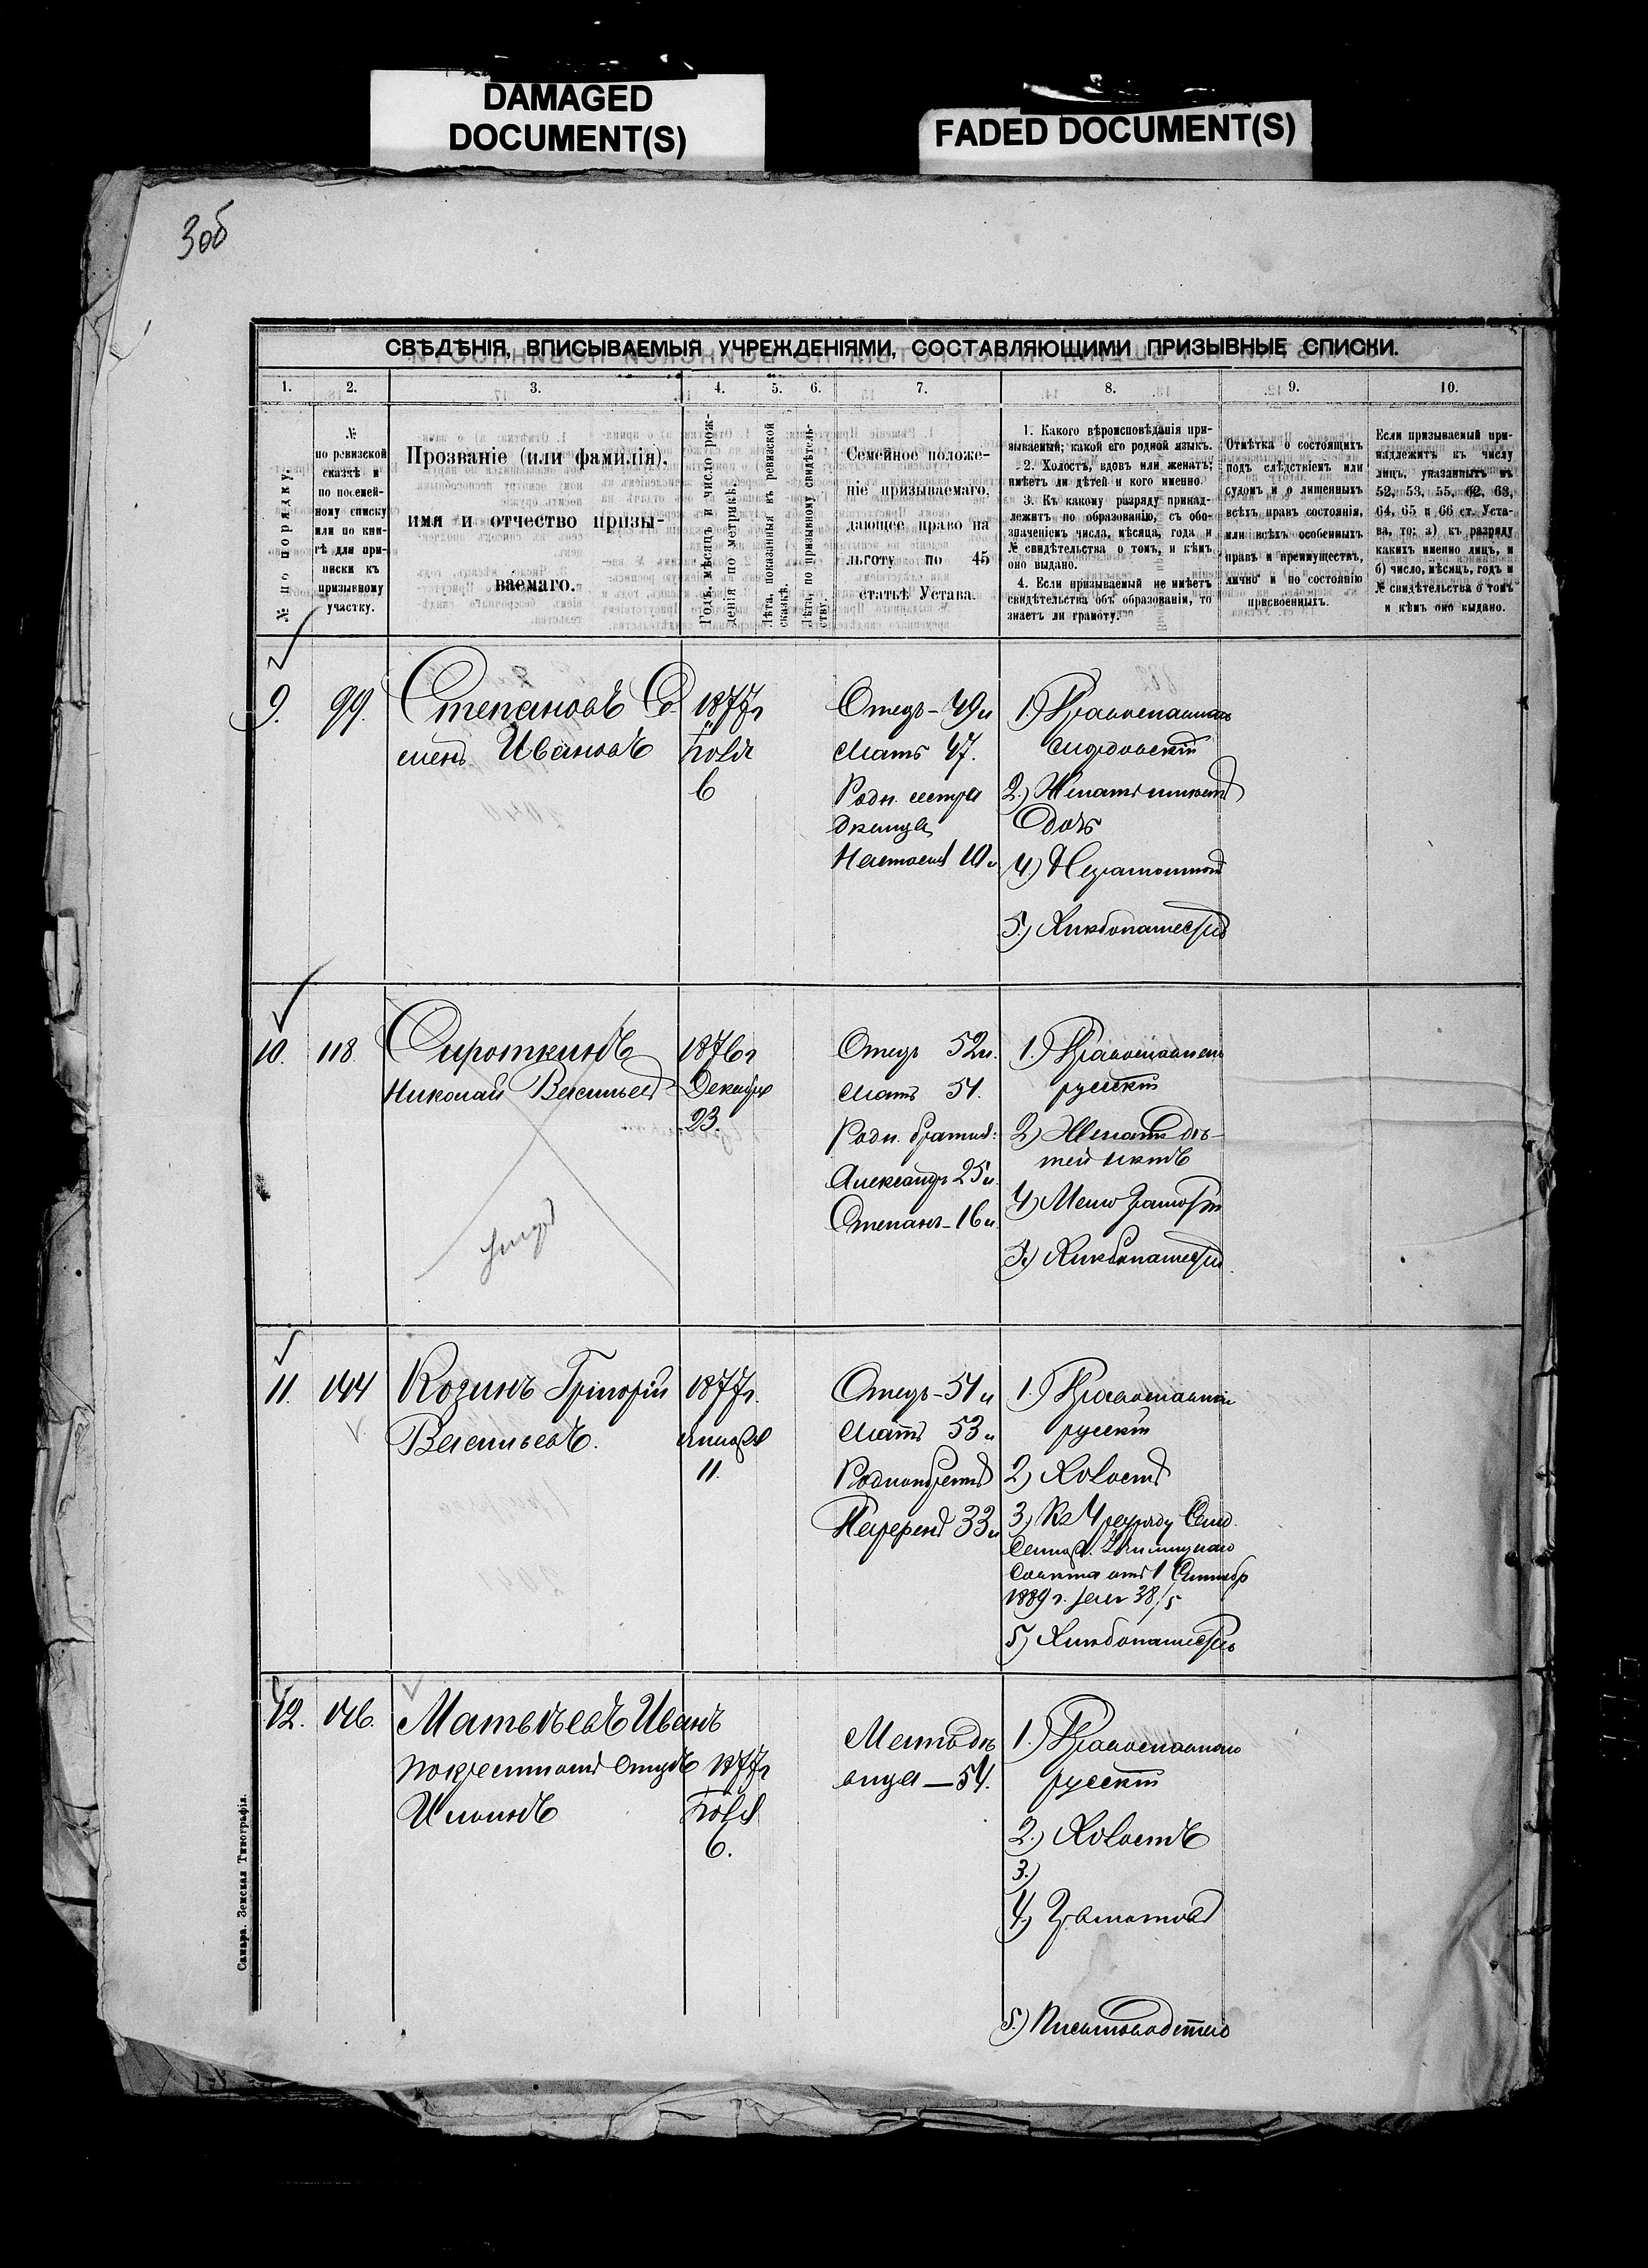 DAMAGED
DOCUMENT(S)
FADED DOCUMENT(S)
306
СВѢДѢНІЯ, ВПИСЫВАЕМЫЯ УЧРЕЖДЕНІЯМИ, СОСТАВЛЯЮЩИМИ ПРИЗЫВНЫЕ СПИСКИ.
1. 2. 3. 4. 5. 6. 7. 8. 9. 10.
№ по порядку.
№
по ревизской
сказкѣ и
по посемей-
ному списку
или по кни-
гѣ для при-
писки къ
призывному
участку.
Прозваніе (или фамилія),
имя и отчество призы-
ваемаго.
Годъ, мѣсяцъ и число рож-
денія по метрикѣ.
Лѣта, показанныя къ ревизской
сказкѣ.
Лѣта, по призывному свидѣтель-
ству.
Семейное положе-
ніе призываемаго,
дающее право на
льготу по 45
статьѣ Устава.
1. Какого вѣроисповѣданія при-
зываемый; какой его родной языкъ.
2. Холостъ, вдовъ или женатъ;
имѣетъ ли дѣтей и кого именно.
3. Къ какому разряду принад-
лежитъ по образованію, съ обо-
значеніемъ числа, мѣсяца, года и
№ свидѣтельства о томъ, и кѣмъ
оно выдано.
4. Если призываемый не имѣетъ
свидѣтельства объ образованіи, то
знаетъ ли грамоту.
Отмѣтка о состоящихъ
подъ слѣдствіемъ или
судомъ и о лишенныхъ
всѣхъ правъ состоянія,
или всѣхъ особенныхъ
правъ и преимуществъ,
лично и по состоянію
присвоенныхъ.
Если призываемый при-
надлежитъ къ числу
лицъ, указанныхъ въ
52, 53, 55, 62, 63,
64, 65 и 66 ст. Уста-
ва, то: а) къ разряду
какихъ именно лицъ, и
б) число, мѣсяцъ, годъ и
№ свидѣтельства о томъ
и кѣмъ оно выдано.
9. 99. Степановъ Се-
менъ Ивановъ
1877г
6
Отецъ - 49л
Мать 47.
Родн. сестра
Настасья 10л
1.) Православнаго
мордовскій
2.) Женатъ имѣетъ
Дочь
4.) Неграмотный
5.) Хлѣбопашество
10. 118 Сироткинъ
Николай Васильевъ
1876г
Декабря
23.
Отецъ 52л.
Мать 51.
Родн. братья:
Александръ 25л.
Степанъ - 16л.
1.) Православнаго
русскій
2) Женатъ дѣ-
тей нѣтъ
4) Мало грамотный
5.) Хлѣбопашество
11. 144 Козинъ Григорій
Васильевъ.
1877г.
Января
11.
Отецъ - 51л
Мать 53л
Родной братъ
33л
1.) Православный
русскій
2) Холостъ
3) Къ 4 разряду
1889г. за № 38/5
5) Хлѣбопашество
12. 146. Матвѣевъ Иванъ
по крестному отцу
Ильинъ
1877г
6.
54.
1.) Православнаго
русскій
2.) Холостъ
3.)
4.) Грамотный
5.) Письмоводство
Самара. Земская Типографія.